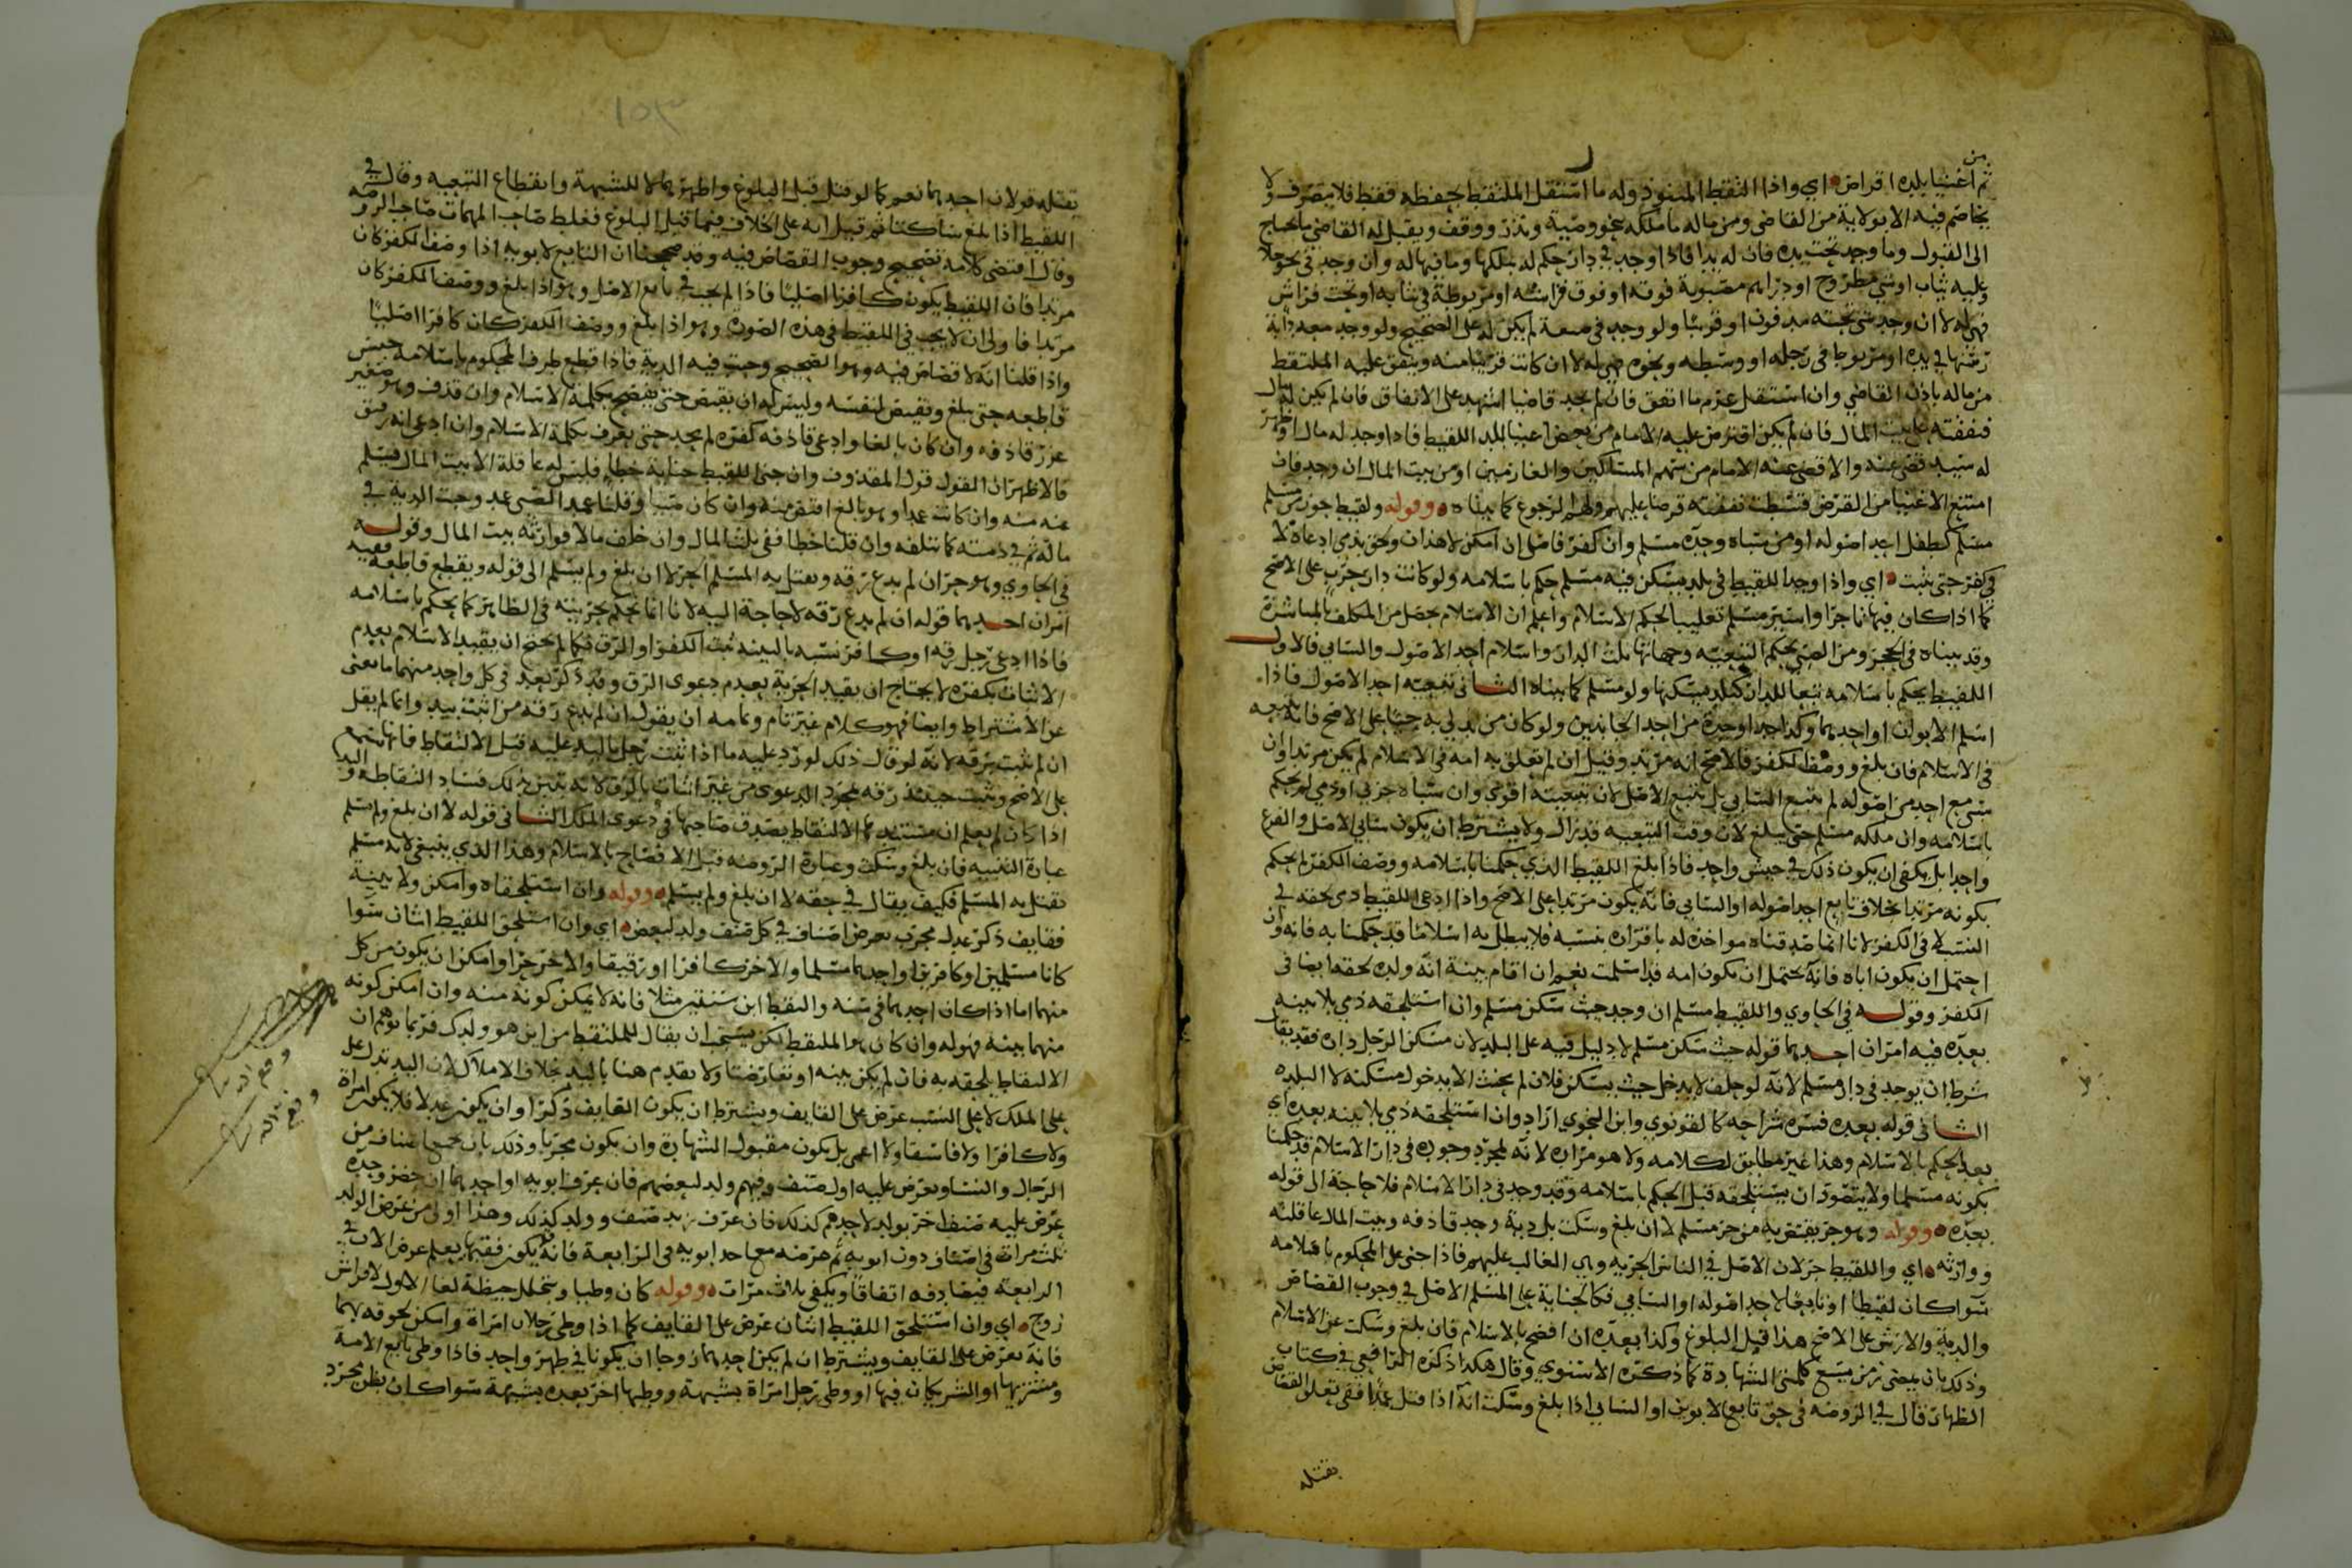 من
ثم اغنيا بلده اقراض اي واذا التقط المنبوذ وله ما استقل الملتقط بحفظه فقط فلا يتصرف ولا
يخاصم فيه الا بولاية من القاضي ومن ماله ما ملكه بنحو وصية ونذر ووقف ويقبل له القاضي ما يحتاج
الى القبول وما وجد تحت يده فان له يدا فاذا وجد في دار حكم له بملكها وما فيها له وان وجد في نحو خلا
وعليه ثياب او شي مطروح او دراهم مصبوبة فوقه او فوق فراشه او مربوطة في ثيابه او تحت فراش
فهي له لا ان وجد شي تحته مدفون او قريبا ولو وجد في صعة لم يكن له على الصحيح ولو وجد معه دابة
زمتها في يده او مربوط في رجله او وسطه ونحوه فهي له لا ان كانت قريبا منه وينفق عليه الملتقط
من ماله باذن القاضي وان استقل غرم ما انفق فان لم يجد قاضيا اشهد على الانفاق فان لم يكن له مال
فنفقته على بيت المال فان لم يكن اقترض عليه الامام من بعض اغنيا البلد اللقيط فاذا وجد له مال او ظهر
له سيد قضي عنه والا قضي عنه الامام من سهم المساكين والغارمين او من بيت المال ان وجد فان
امتنع الاغنيا من القرض قسطت نفقته قرضا عليهم ولهم الرجوع كما بيناه وقوله ولقيط جوز من مسلم
مسلم كطفل احد اصوله او من سباه وحده مسلم وان كفر فاصل ان امكن لا هذان ولحق بذمي ادعاه لا
في كفر حتى يثبت اي واذا وجد اللقيط في بلد يسكن فيه مسلم حكم باسلامه ولو كانت دار حرب على الاصح
كما اذا كان فيها تاجرا واسير مسلم تغليبا لحكم الاسلام واعلم ان الاسلام يحصل من المكلف بالمباشرة
وقد بيناه في الحجر ومن الصبي بحكم التبعية وجهاتها ثلث الدار واسلام احد الاصول والسابي فالاول
اللقيط يحكم باسلامه تبعا للدار كبلد يسكنها ولو مسلم كما بيناه الثاني تبعيته احد الاصول فاذا
اسلم الابوان او احدهما وكذا جد او جدة من احد الجانبين ولو كان من يدلي به حيا على الاصح فانه يتبعه
في الاسلام فان بلغ ووصف الكفر فالاصح انه مرتد وقيل ان لم تعلق به امه في الاسلام لم يكن مرتدا وان
سبي مع احد من اصوله لم يتبع السابي بل يتبع الاصل لان تبعيته اقوى وان سباه حربي او ذمي لم يحكم
باسلامه وان ملكه مسلم حتى يبلغ لان وقت التبعية قد زال ولا يشترط ان يكون سابي الاصل والفرع
واحدا بل يكفي ان يكون ذلك في جيش واحد فاذا بلغ اللقيط الذي حكمنا باسلامه ووصف الكفر لم يحكم
بكونه مرتدا بخلاف تابع احد اصوله او السابي فانه يكون مرتدا على الاصح واذا ادعى اللقيط ذمي لحقه في
النسب لا في الكفر لانا انما صدقناه مواخذة له باقراره بنسبه فلا يبطل به اسلاما قد حكمنا به فانه وان
احتمل ان يكون اباه فانه يحتمل ان يكون امه قد اسلمت نعم ان اقام بينة انه ولده لحقه ايضا في
الكفر وقوله في الحاوي واللقيط مسلم ان وجد حيث سكن مسلم وان استلحقه ذمي بلا بينه
بعده فيه امران احدهما قوله حيث سكن مسلم لا دليل فيه على البلد لان مسكن الرجل داره فقد يقال
شرط ان يوجد في دار مسلم لانه لو حلف لا يدخل حيث يسكن فلان لم يحنث الا بدخول مسكنه لا البلده
الثاني قوله بعده فسره شراحه كالقونوي وابن النحوي اراد وان استلحقه ذمي بلا بينه بعده اي
بعد الحكم بالاسلام وهذا غير مطابق لكلامه ولا هو مراده لانه لمجرد وجوده في دار الاسلام قد حكمنا
بكونه مسلما ولا يتصور ان يستلحقه قبل الحكم باسلامه وقد وجد في دار الاسلام فلا حاجة الى قوله
بعده وقوله وهو حر يقتص به من حر مسلم لا ان بلغ وسكت بل دية وحد قاذفه وبيت المال عاقلته
ووارثه اي واللقيط حر لان الاصل في الناس الحرية وهي الغالب عليهم فاذا جنى على المحكوم باسلامه
سوا كان لقيطا او تابعا لاحد اصوله او السابي فكالجناية على المسلم الاصل في وجوب القصاص
والدية والارش على الاصح هذا قبل البلوغ وكذا بعده ان افصح بالاسلام فان بلغ وسكت عن الاسلام
وذلك بان يمضي زمن يسع كلمتي الشهادة كما ذكره الاسنوي وقال هكذا ذكره الرافعي في كتاب
الظهار قال في الروضه في حق تابع الابوين او السابي اذا بلغ وسكت انه اذا قتل عمدا ففي تعلق القصاص
بقتله
١٥٣
بقتله قولان احدهما نعم كما لو قتل قبل البلوغ واظهرهما لا للشبهة وانقطاع التبعيه وقال في
اللقيط اذا بلغ ساكتا ثم قتل انه على الخلاف فيما قبل البلوغ فغلط صاحب المهمات صاحب الروضه
وقال اقتضى كلامه تصحيح وجوب القصاص فيه وقد صححنا ان التابع لابويه اذا وصف الكفر كان
مرتدا فان اللقيط يكون كافرا اصليا فاذا لم يجب في تابع الاصل وهو اذا بلغ ووصف الكفر كان
مرتدا فاولى ان لا يجب في اللقيط في هذه الصوره وهو اذا بلغ ووصف الكفر كان كافرا اصليا
واذا قلنا انه لا قصاص فيه وهو الصحيح وجبت فيه الدية فاذا قطع طرف المحكوم باسلامه حبس
قاطعه حتى يبلغ ويقتص لنفسه وليس له ان يقتص حتى يفصح بكلمة الاسلام وان قذف وهو صغير
عزر قاذفه وان كان بالغا وادعى قاذفه كفره لم يحد حتى يعرف بكلمة الاسلام وان ادعى انه رق
فالاظهر ان القول قول المقذوف وان جنى اللقيط جناية خطا فليس له عاقلة الا بيت المال فيسلم
عنه منه وان كانت عمدا وهو بالغ اقتص منه وان كان صبيا وقلنا عمد الصبي عمد وجبت الدية في
ماله ثم في ذمته كما تلفه وان قلنا خطا ففي بيت المال وان خلف مالا فوارثه بيت المال وقوله
في الحاوي وهو حر ان لم يدع رقه ويقتل به المسلم الحر لا ان بلغ ولم يسلم الى قوله ويقطع قاطعه ففيه
امران احدهما قوله ان لم يدع رقه لا حاجة اليه لانا انما نحكم بحريته في الظاهر كما يحكم باسلامه
فاذا ادعى رجل رقه او كافر نسبه بالبينه ثبت الكفر او الرق فكما لم يحتج ان يقيد الاسلام بعدم
الاثبات بكفره لا يحتاج ان يقيد الحرية بعدم دعوى الرق وقد ذكر بعد في كل واحد منهما ما يغني
عن الاشتراط وايضا فهو كلام غير تام وتمامه ان يقول ان لم يدع رقه من اثبت يد وانما لم يقل
ان لم تثبت رقه لانه لو قال ذلك لورد عليه ما اذا اثبت رجل باليد عليه قبل الالتقاط فانها تسمع
على الاصح ويثبت حينئذ رقه بمجرد الدعوى من غير اثبات بالرق لانه تبين بذلك فساد التقاطه واليد
اذا كان لم يعلم ان مستندها الالتقاط يصدق صاحبها في دعوى الملك الثاني قوله لا ان بلغ ولم يسلم
عبارة التنبيه فان بلغ وسكت وعبارة الروضه قبل الافصاح بالاسلام وهذا الذي ينبغي لانه مسلم
يقتل به المسلم فكيف يقال في حقه لا ان بلغ ولم يسلم وقوله وان استلحقاه وامكن ولا بينة
فقايف ذكر عدل مجرب بعرض اصناف في كل صنف ولد لبعض اي وان استلحق اللقيط اثنان سوا
كانا مسلمين او كافرين او احدهما مسلما والاخر كافرا او رقيقا والاخر حرا وامكن ان يكون من كل
منهما اما اذا كان احدهما في سنه والتقط ابن سنتين مثلا فانه لا يمكن كونه منه وان امكن كونه
منهما ببينه فهو له وان كان هو الملتقط لكن يستحب ان يقال للملتقط من اين هو ولدك فربما توهم ان
الالتقاط يلحقه به فان لم يكن بينه او تعارضتا ولا يقدم هنا باليد بخلاف الاملاك لان اليد تدل على
على الملك لا على النسب عرض على القايف ويشترط ان يكون القايف ذكرا وان يكون عدلا فلا يكون امراة
ولا كافرا ولا فاسقا ولا اعمى بل يكون مقبول الشهادة وان يكون مجربا وذلك بان يجمع اصناف من
الرجال والنسا ويعرض عليه اول صنف وفيهم ولد لبعضهم فان عرف ابويه او احدهما ان حضر وحده
عرض عليه صنف اخر بولد لاحدهم كذلك فان عرف زيد صنف وولد كذلك وهذا اولى من عرض الولد
ثلث مرات في اصناف دون ابويه ثم عرضه مع احد ابويه في الرابعة فانه قد يكون فقيها يعلم عرض الاب في
الرابعة فيصادفه اتفاقا ويكفي بثلاث مرات وقوله كان وطيا وتخلل حيضة لغا الاول لا فراش
زوج اي وان استلحق اللقيط اثنان عرض على القايف كما اذا وطي رجلان امراة وامكن لحوقه بهما
فانه يعرض على القايف ويشترط ان لم يكن احدهما زوجا ان يكونا في طهر واحد فاذا وطي بايع الامة
ومشتريها او الشريكان فيها او وطي رجل امراة بشبهة ووطيها اخر بعده بشبهة سوا كان بظن مجرد